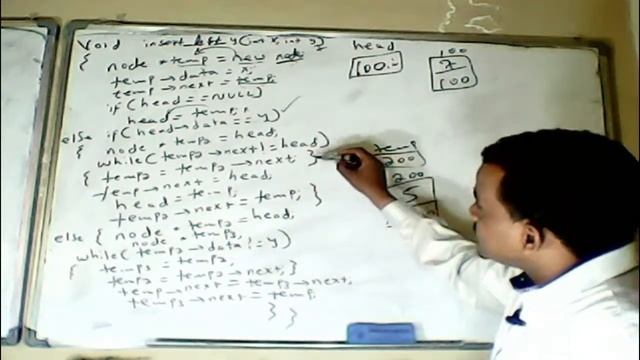 void insert left y(int x, int y)
{ node * temp = new node
temp→data = x;
temp→next = temp;
if (head == NULL)
head = temp;
else if (head→data == y)
{ node * temp2 = head;
while (temp2→next != head)
{ temp2 = temp2→next; }
temp→next = head;
head = temp;
temp2→next = temp; }
else { node * temp2 = head;
node * temp3;
while (temp2→data != y)
{ temp3 = temp2;
temp2 = temp2→next; }
temp→next = temp3→next;
temp3→next = temp;
} }
head
100
100
7
100
temp
200
200
5